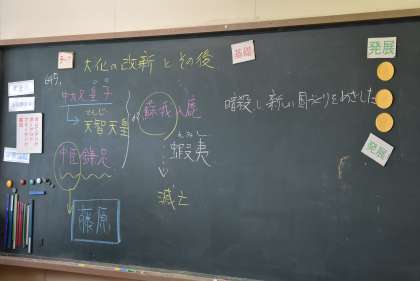 大化の改新とその後
基礎
発展
645.
中大兄皇子
てんじ
天智天皇
中臣鎌足
藤原
蘇我入鹿
えみし
蝦夷
滅亡
暗殺し新しい国づくりをめざした
発展